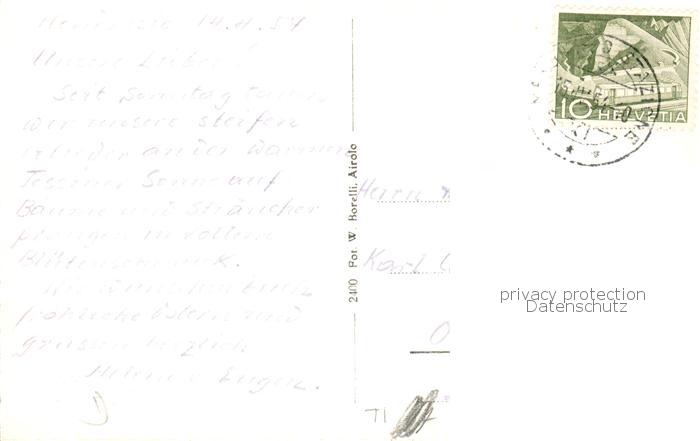 14.4.54
Unsere Lieben!
Seit Sonntag tauen
wir unsere steifen
Glieder an der warmen
Tessiner Sonne auf
Bäume und Sträucher
prangen in vollem
Blütenschmuck.
Wir wünschen Euch
fröhliche Ostern und
grüssen herzlich
Helene & Eugen.
2400 Fot. W. Borelli, Airolo
Herrn
Karl
TI
10 HELVETIA
STAZIONE
privacy protection
Datenschutz